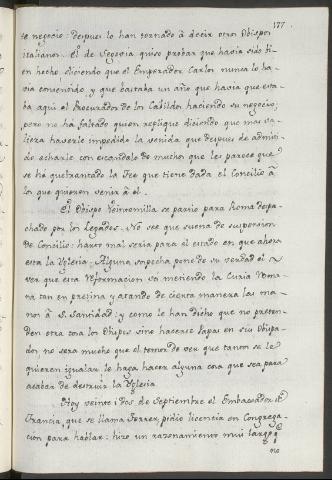 177
te negocio: despues lo han tornado à decir otros Obispos
italianos. El de Segovia quiso probar que havia sido bi-
en hecho, diciendo que el Emperador Carlos nunca lo ha-
via consentido, y que bastaba un año que havia que esta-
ba aqui el Procurador de los Cabildos haciendo su negocio;
pero no ha faltado quien replique diciendo que mas va-
liera haverle impedido la venida que despues de admiti-
do echarle con escandalo de mucho que les parece que
se ha quebrantado la Fee que tiene dada el Concilio à
los que quieren venir à èl.
El Obispo Veintemilla se partio para Roma despa-
chado por los Legados. No sèe que suena de suspension
de Concilio: harto mal seria para el estado en que ahora
esta la Yglesia. Alguna sospecha pone de su verdad el
ver que esta reformacion và metiendo la Curia Roma-
na tan en pretina y atando de cierta manera las ma-
nos à S. Santidad: y como le han dicho que no preten-
den otra cosa los Obispos sino hacerse Papas en sus Obispa-
dos no serà mucho que el temor de ver que tantos se le
quieren igualar le haga hacer alguna cosa que sea para
acabar de destruir la Yglesia
Hoy veinte i Dos de Septiembre el Embaxador de
Francia, que se llama Ferrer, pidio licencia en Congrega-
cion para hablar: hizo un razonamiento mui largo,
no